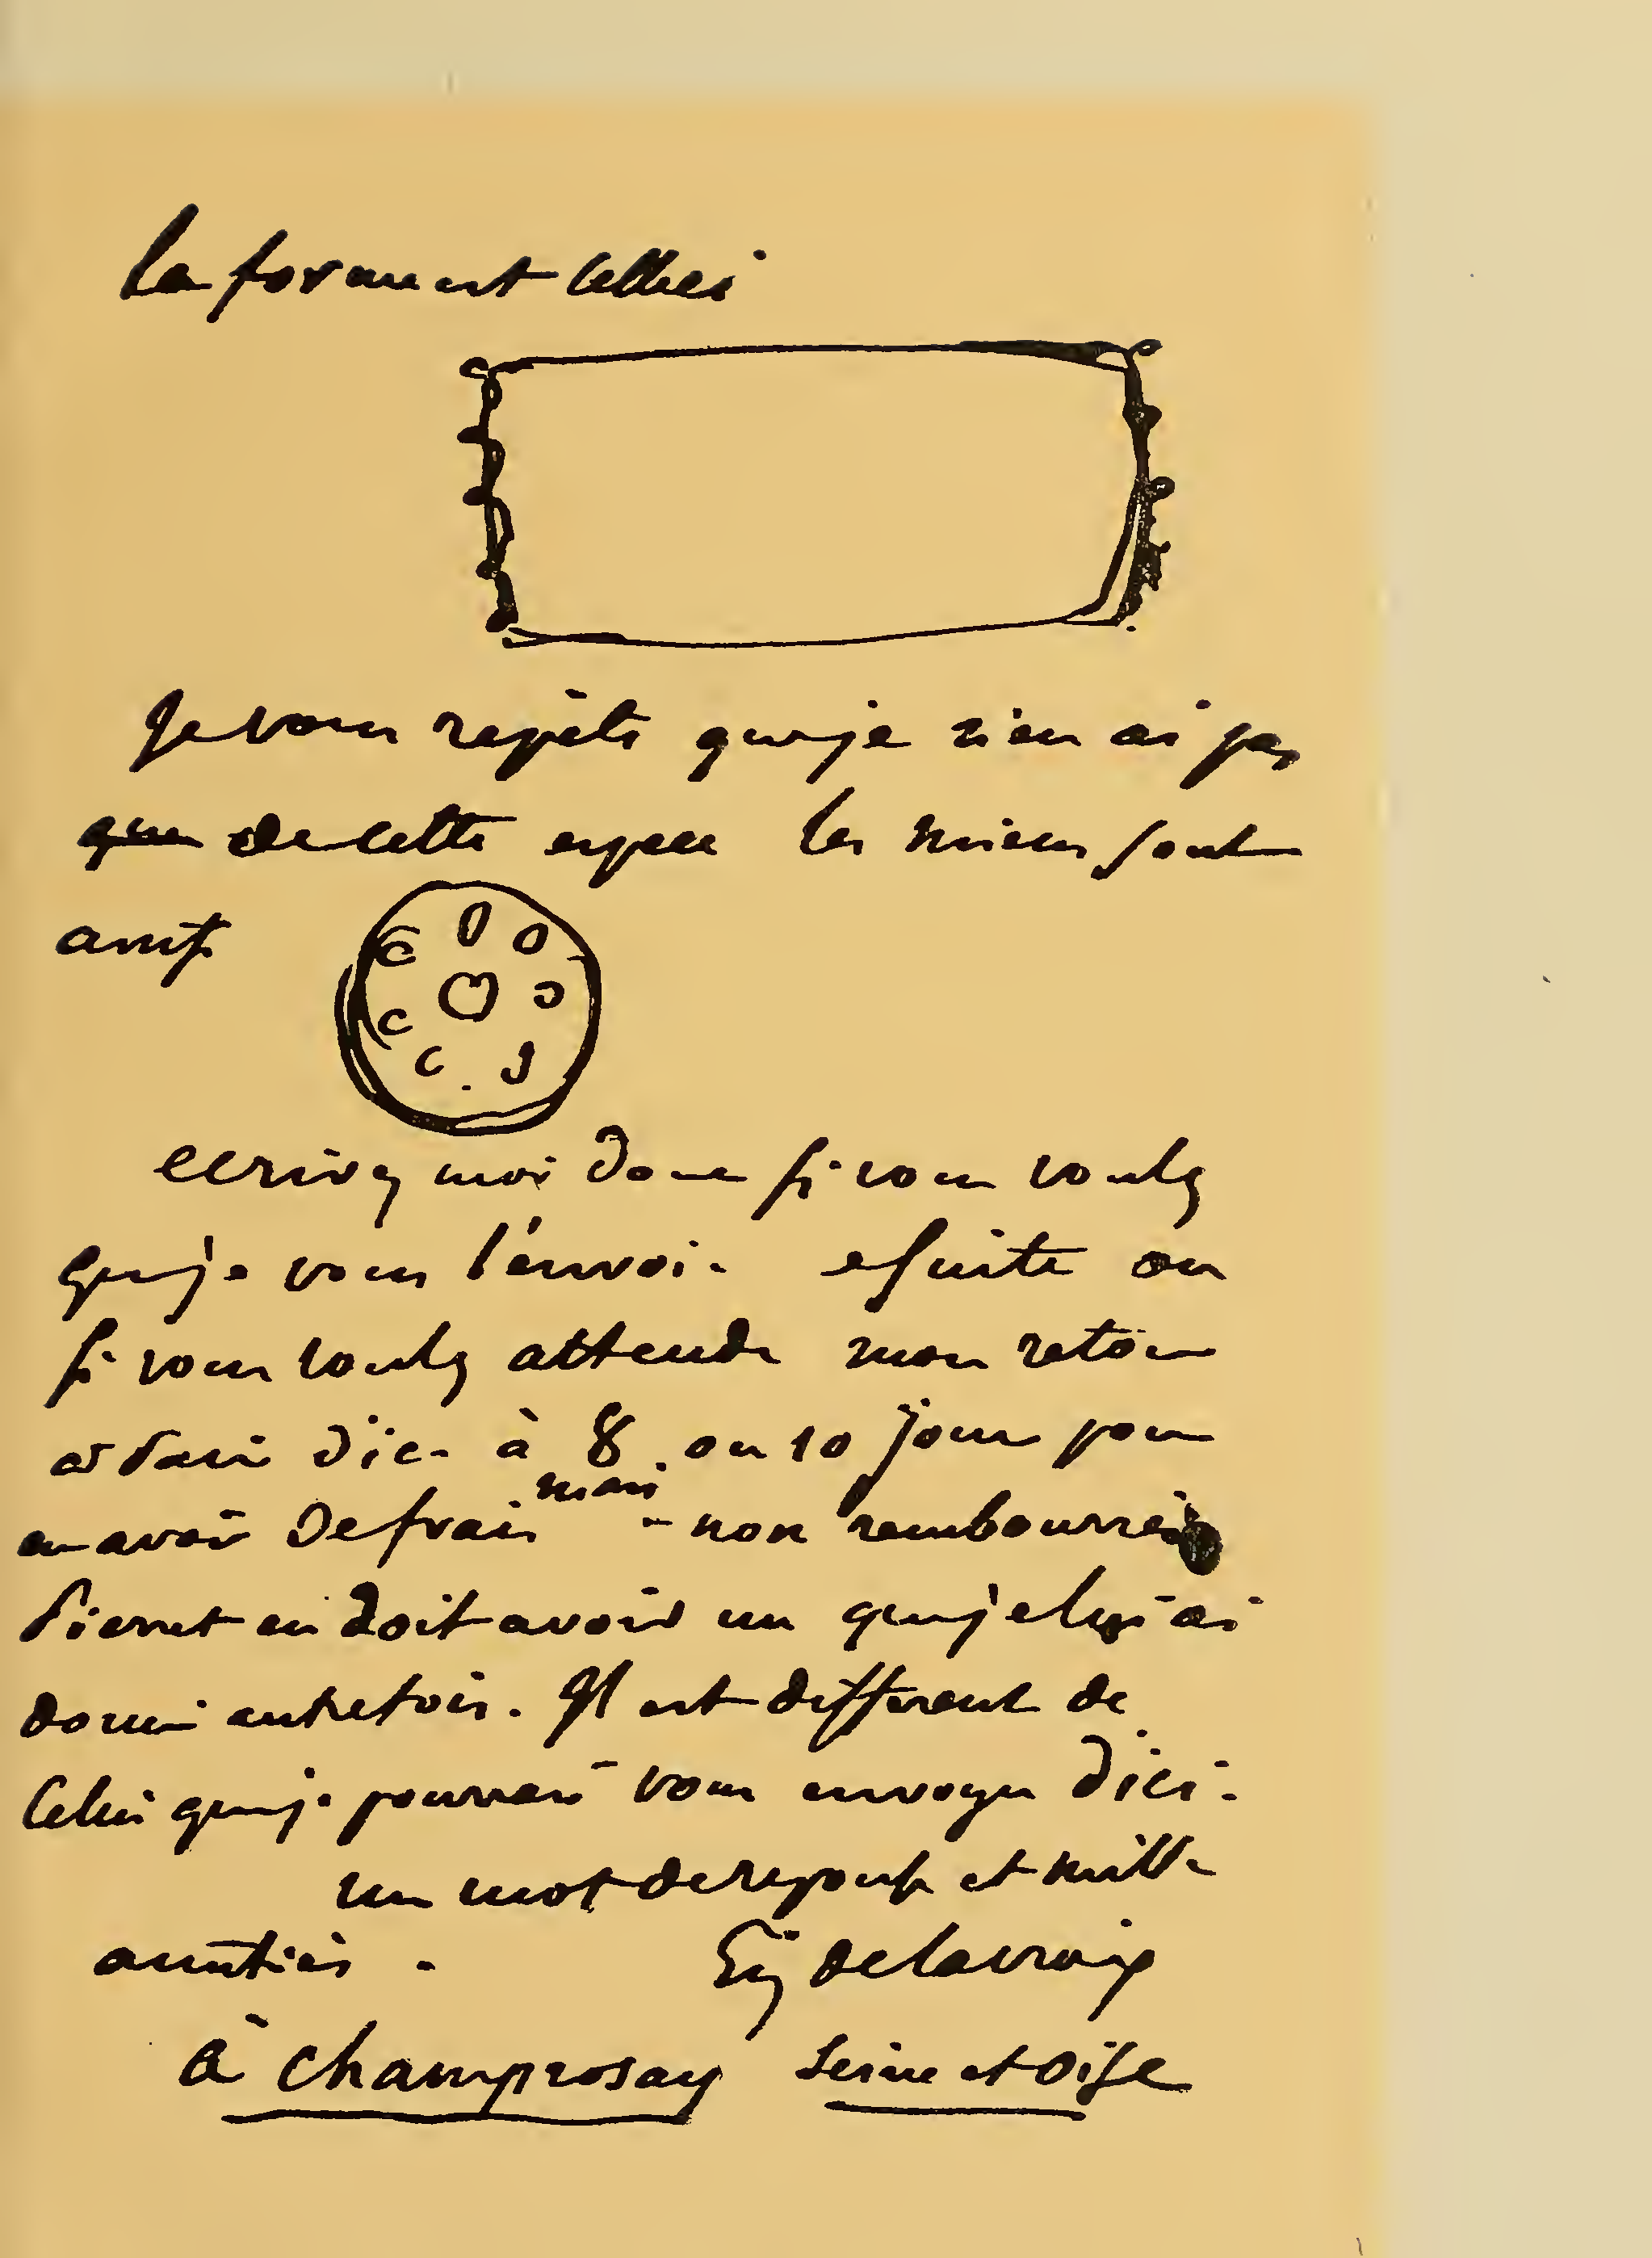 La forme est celleci
Je vous repète que je n'en ai pas
que de cette espece les miens sont
ainsi
ecrivez moi donc si vous voulez
que je vous l'envoie ensuite ou
si vous voulez attendre mon retour
à Paris d'ici à 8 ou 10 jours pour
en avoir de frais mais non rembourrés
Pierret en doit avoir un que je lui ai
donné autrefois. Il est different de
Celui que je pourrai vous envoyer d'ici.
un mot de reponse et mille
amitiés. Eug Delacroix
à Champrosay Seine et Oise